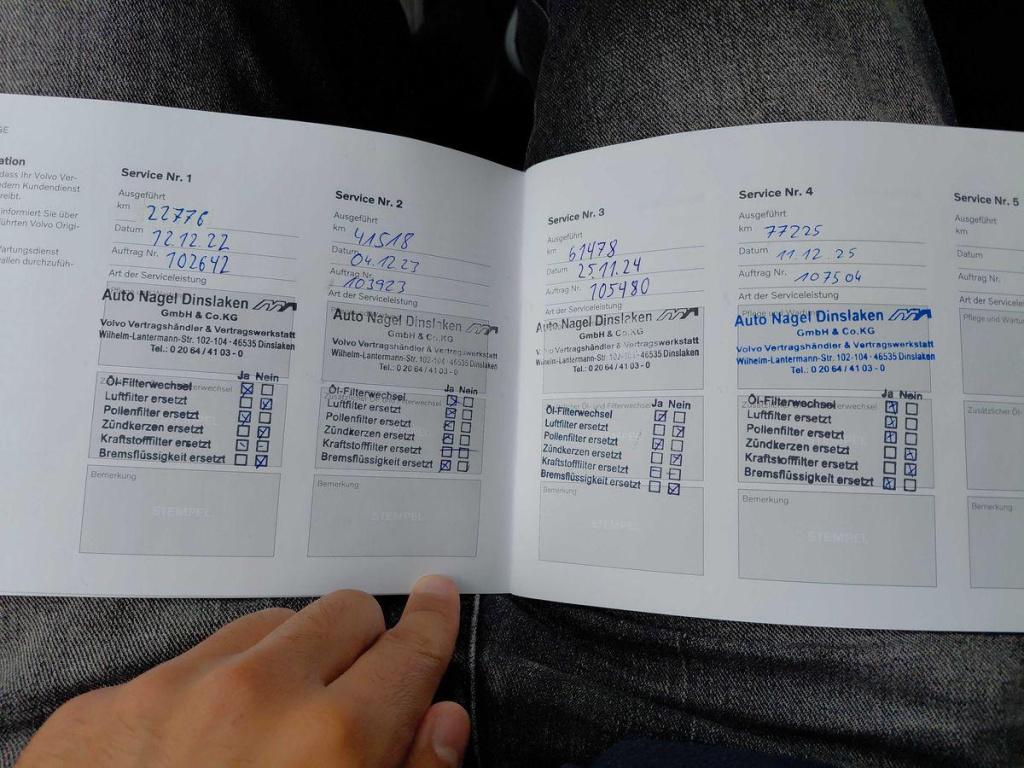 GE
ation
dass Ihr Volvo Ver-
edem Kundendienst
reibt.
informiert Sie über
führten Volvo Origi-
artungsdienst
allen durchzufüh-
Service Nr. 1
Ausgeführt
km 22776
Datum 12.12.22
Auftrag Nr. 102642
Art der Serviceleistung
Auto Nagel Dinslaken
GmbH & Co.KG
Volvo Vertragshändler & Vertragswerkstatt
Wilhelm-Lantermann-Str. 102-104 · 46535 Dinslaken
Tel.: 0 20 64 / 41 03 - 0
Ja Nein
Öl-Filterwechsel
Luftfilter ersetzt
Pollenfilter ersetzt
Zündkerzen ersetzt
Kraftstofffilter ersetzt
Bremsflüssigkeit ersetzt
Bemerkung
STEMPEL
Service Nr. 2
Ausgeführt
km 41518
Datum 04.12.23
Auftrag Nr. 103923
Art der Serviceleistung
Auto Nagel Dinslaken
GmbH & Co.KG
Volvo Vertragshändler & Vertragswerkstatt
Wilhelm-Lantermann-Str. 102-104 · 46535 Dinslaken
Tel.: 0 20 64 / 41 03 - 0
Ja Nein
Öl-Filterwechsel
Luftfilter ersetzt
Pollenfilter ersetzt
Zündkerzen ersetzt
Kraftstofffilter ersetzt
Bremsflüssigkeit ersetzt
Bemerkung
STEMPEL
Service Nr. 3
Ausgeführt
km 61478
Datum 25.11.24
Auftrag Nr. 105480
Art der Serviceleistung
Auto Nagel Dinslaken
GmbH & Co.KG
Volvo Vertragshändler & Vertragswerkstatt
Wilhelm-Lantermann-Str. 102-104 · 46535 Dinslaken
Tel.: 0 20 64 / 41 03 - 0
Ja Nein
Öl-Filterwechsel
Luftfilter ersetzt
Pollenfilter ersetzt
Zündkerzen ersetzt
Kraftstofffilter ersetzt
Bremsflüssigkeit ersetzt
Bemerkung
STEMPEL
Service Nr. 4
Ausgeführt
km 77225
Datum 11.12.25
Auftrag Nr. 107504
Art der Serviceleistung
Auto Nagel Dinslaken
GmbH & Co.KG
Volvo Vertragshändler & Vertragswerkstatt
Wilhelm-Lantermann-Str. 102-104 · 46535 Dinslaken
Tel.: 0 20 64 / 41 03 - 0
Ja Nein
Öl-Filterwechsel
Luftfilter ersetzt
Pollenfilter ersetzt
Zündkerzen ersetzt
Kraftstofffilter ersetzt
Bremsflüssigkeit ersetzt
Bemerkung
STEMPEL
Service Nr. 5
Ausgeführt
km
Datum
Auftrag Nr.
Art der Serviceleis
Pflege und Wartu
Zusätzlicher Öl-
Bemerkung